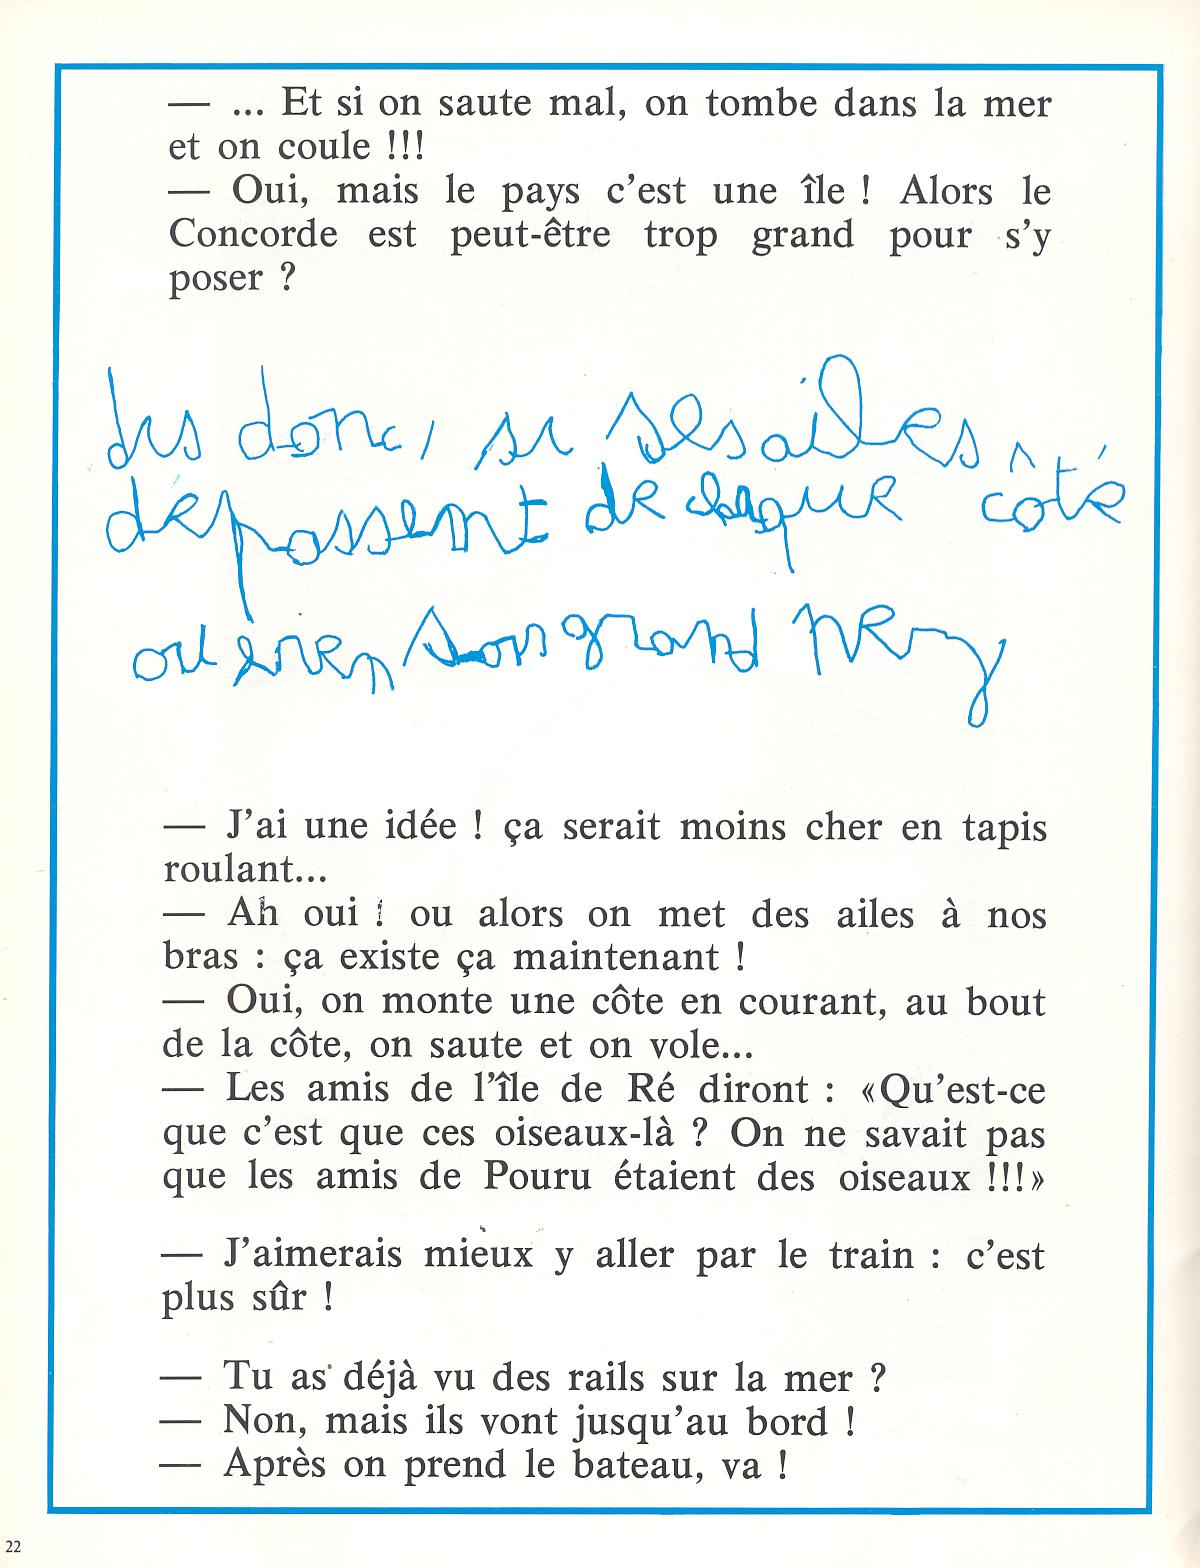 — ... Et si on saute mal, on tombe dans la mer
et on coule !!!
— Oui, mais le pays c'est une île ! Alors le
Concorde est peut-être trop grand pour s'y
poser ?
dis donc, si ses ailes
dépassent de chaque côté
ou bien son grand nez
— J'ai une idée ! ça serait moins cher en tapis
roulant...
— Ah oui ! ou alors on met des ailes à nos
bras : ça existe ça maintenant !
— Oui, on monte une côte en courant, au bout
de la côte, on saute et on vole...
— Les amis de l'île de Ré diront : «Qu'est-ce
que c'est que ces oiseaux-là ? On ne savait pas
que les amis de Pouru étaient des oiseaux !!!»
— J'aimerais mieux y aller par le train : c'est
plus sûr !
— Tu as déjà vu des rails sur la mer ?
— Non, mais ils vont jusqu'au bord !
— Après on prend le bateau, va !
22